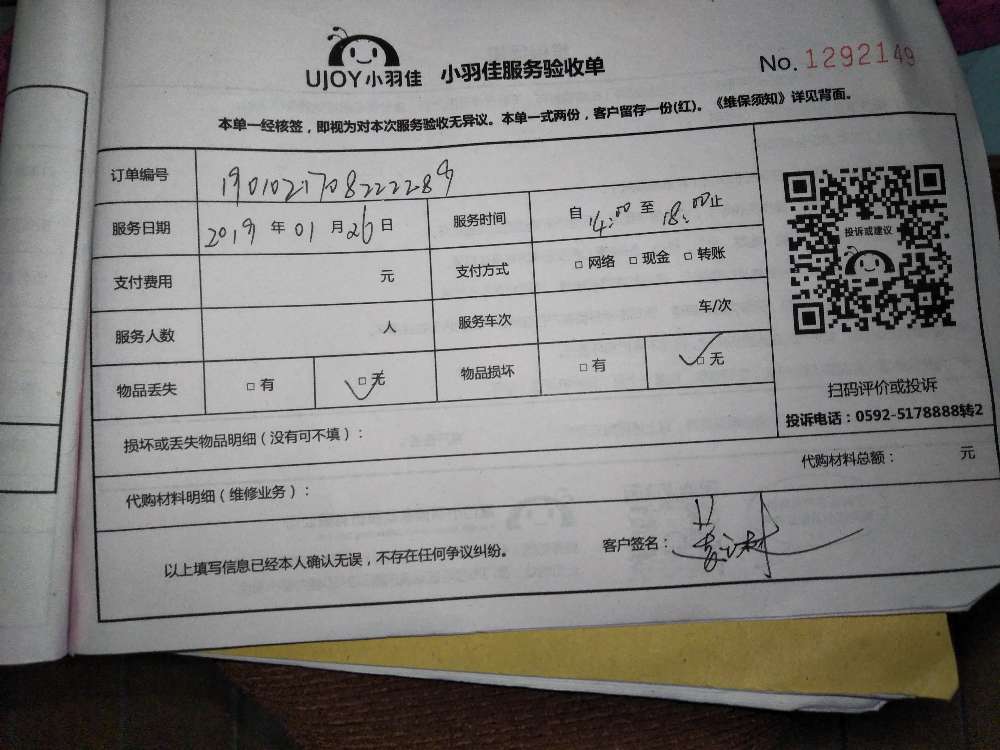 UJOY小羽佳 小羽佳服务验收单 No. 1292149
本单一经核签，即视为对本次服务验收无异议。本单一式两份，客户留存一份(红)。《维保须知》详见背面。
订单编号 1901021708222289
服务日期 2019 年 01 月 26 日 服务时间 自 14:00 至 18:00 止
投诉或建议
支付费用 元 支付方式 □ 网络 □ 现金 □ 转账
服务人数 人 服务车次 车/次
物品丢失 □ 有 □ 无 物品损坏 □ 有 □ 无
扫码评价或投诉
投诉电话：0592-5178888转2
损坏或丢失物品明细（没有可不填）：
代购材料明细（维修业务）： 代购材料总额： 元
以上填写信息已经本人确认无误，不存在任何争议纠纷。 客户签名：